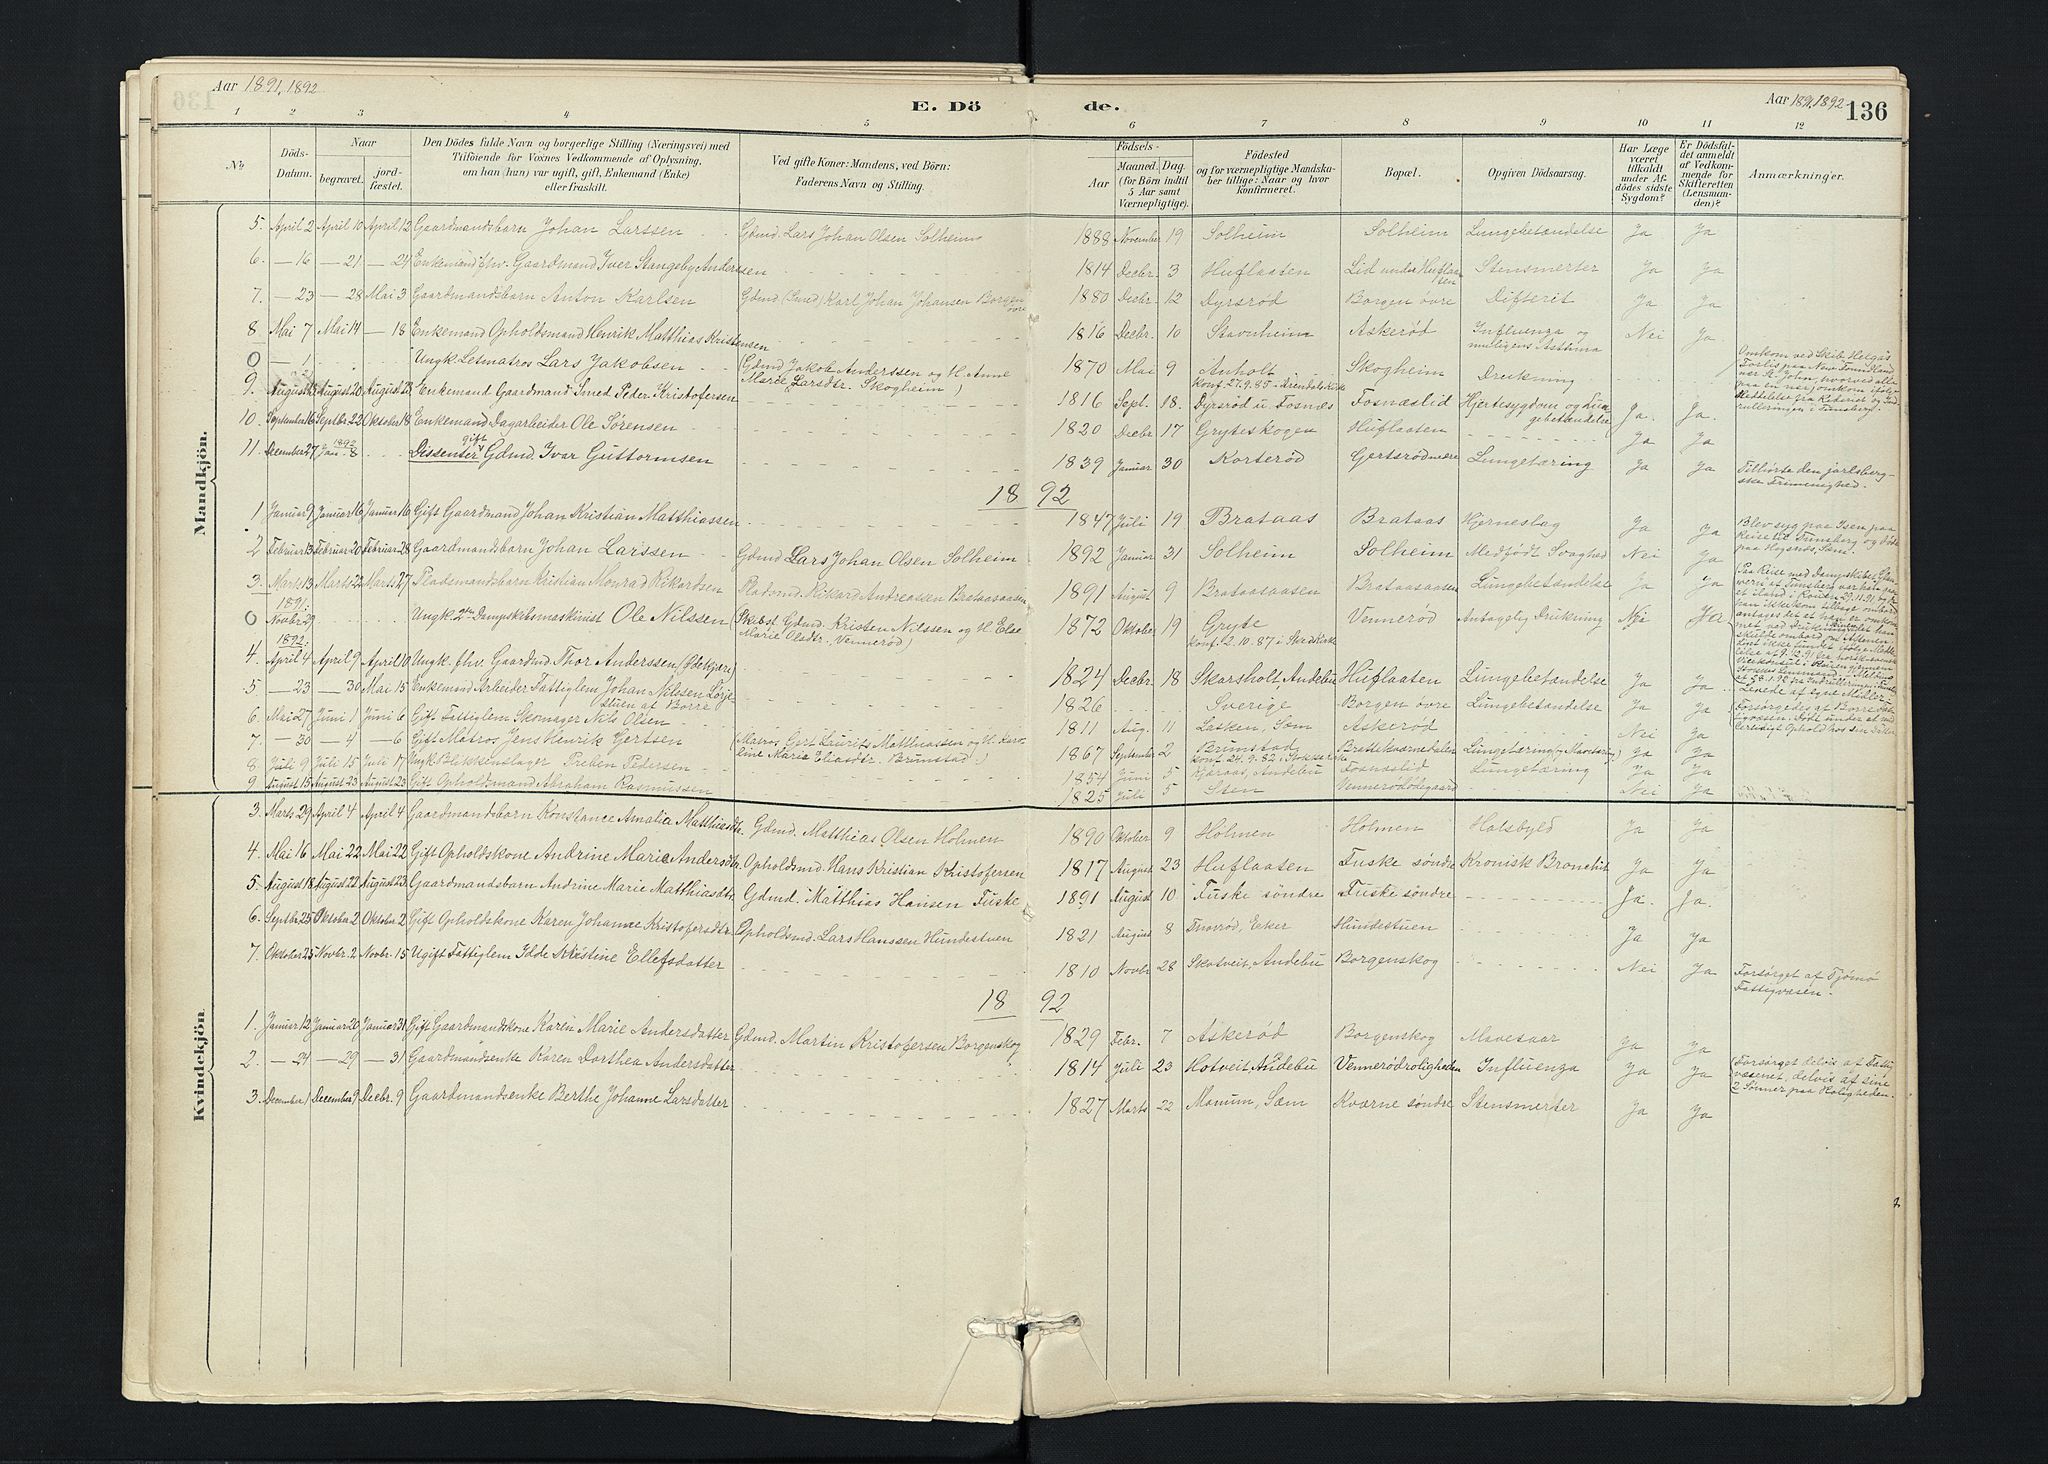 Aar 1891, 1892
E. Dö de.
Aar 1891, 1892 136
1 2 3 4 5 6 7 8 9 10 11 12
No Döds-Datum. Naar begravet. jordfæstet. Den Dödes fulde Navn og borgerlige Stilling (Næringsvei) med Tilföiende for Voxnes Vedkommende af Oplysning, om han (hun) var ugift, gift, Enkemand (Enke) eller fraskilt. Ved gifte Koner: Mandens, ved Börn: Faderens Navn og Stilling. Födsels- Aar Maaned. Dag. (for Börn indtil 5 Aar samt Værnepligtige). Födested og for værnepligtige Mandskaber tillige: Naar og hvor konfirmeret. Bopæl. Opgiven Dödsaarsag. Har Læge været tilkaldt under Afdödes sidste Sygdom? Er Dödsfaldet anmeldt af Vedkommende for Skifteretten (Lensmanden)? Anmærkninger.
Mandkjön.
5. April 2 April 10 April 12 Gaardmandsbarn Johan Larssen Gdmd. Lars Johan Olsen Solheim 1888 November 19 Solheim Solheim Lungebetændelse Ja Ja
6. — 16 — 21 — 24 Enkemand fhv. Gaardmand Iver Stangeby Anderssen 1814 Decbr. 3 Huflaaten Lid under Huflaaten Stensmerter Ja Ja
7. — 23 — 28 Mai 3 Gaardmandsbarn Anton Karlsen Gdmd (Smd) Karl Johan Johansen Borgen övre 1880 Decbr. 12 Dyrsröd Borgen övre Difterit Ja Ja
8. Mai 7 Mai 14 — 18 Enkemand Opholdsmand Henrik Matthias Kristensen 1816 Decbr. 10 Stavnheim Askeröd Influenza og muligens Asthma Nei Ja.
0 — 1 Ungk. Letmatros Lars Jakobsen (Gdmd Jakob Anderssen og H. Anne Marie Larsdtr. Skogheim) 1870 Mai 9 Anholt konf. 27.9.85 i Arendals Kirke Skogheim Drukning Omkom ved Skib Helgas Forlis paa New Foundland nær St. John, hvorved alle paa en nær omkom
9. August 15 August 20 August 23 Enkemand Gaardmand Smed Peder Kristofersen 1816 Sept. 18. Dyrsröd u. Fosnæs Fosnæslid Hjertesygdom og Lungebetændelse Ja. Ja.
10. September 16 Septbr. 22 Oktober 18 Enkemand Dagarbeider Ole Sörensen 1820 Decbr 17 Gryteskogen Huflaaten Ja Ja
11. December 27 1892 Jan. 8 Dissenter gift Gdmd. Ivar Guttormsen 1839 Januar 30 Korteröd Gertsröd nedre Lungetæring Ja Ja Tilhörte den jarlsbergske Frimenighed.
18 92
1 Januar 9 Januar 16 Januar 16 Gift Gaardmand Johan Kristian Matthiassen 1847 Juli 19 Brataas Brataas Hjerneslag Ja Ja Blev syg paa Isen paa Reise til Tunsberg og döde paa Hogsnes, Sæm.
2 Februar 13 Februar 20 Februar 28 Gaardmandsbarn Johan Larssen Gdmd Lars Johan Olsen Solheim 1892 Januar 31 Solheim Solheim Medfödt Svaghed Nei Ja
3. Marts 13 Marts 22 Marts 27 Pladsmandsbarn Kristian Monrad Rikardsen Pladsmd. Rikard Andreassen Brataasaasen 1891 August 9 Brataasaasen Brataasaasen Lungebetændelse Ja Ja
0 1891. Novbr. 29 Ungk. 2den Dampskibsmaskinist Ole Nilssen (Skibst. Gdmd. Kristen Nilssen og H. Else Marie Olsdtr., Venneröd) 1872 Oktober 19 Gryte konf. 2.10.87 i Stok Kirke Venneröd Antagelig Drukning Nei Ja
1892.
4. April 4 April 9 April 10 Ungk. fhv. Gaardmd. Thor Anderssen (Ödekjære) 1824 Decbr. 18 Skarsholt, Andebu Huflaaten Lungebetændelse Ja Ja Levede af egne Midler
5 — 23 — 30 Mai 15 Enkemand Arbeider Fattiglem Johan Nilsen af Borre 1826 Sverige Borgen övre Lungebetændelse Ja Ja
6. Mai 27 Juni 1 Juni 6 Gift Fattiglem Skomager Nils Olsen 1811 Aug. 11 Lasken, Sæm Askeröd Nei Ja
7. — 30 — 4 — 6 Gift Matros Jens Henrik Gertsen (Matros Gert Laurits Matthiassen og H. Karoline Marie Eliasdtr. Brunstad) 1867 September 2 Brunstad konf. 24.9.82 i Stokke Kirke Brattekværnedalen Lungetæring Ja Ja
8 Juli 9 Juli 15 Juli 17 Ungk. Blikkenslager Preben Pedersen 1854 Juni 5 Kjæraas, Andebu Fosnæslid Lungetæring Ja Ja
9. August 15 August 23 August 23 Gift Opholdsmand Abraham Rasmussen 1825 Juli 5 Sten Venneröd Ödegaard Nei Ja
Kvindekjön.
3. Marts 29 April 4 April 4 Gaardmandsbarn Konstance Amalia Matthiasdtr. Gdmd. Matthias Olsen Holmen 1890 Oktober 9 Holmen Holmen Halsbyld Ja Ja
4. Mai 16 Mai 22 Mai 22 Gift Opholdskone Andrine Marie Andersdtr. Opholdsmd. Hans Kristian Kristofersen 1817 August 23 Huflaaten Fuske söndre Kronisk Bronchit Ja Ja
5. August 18 August 22 August 23 Gaardmandsbarn Andrine Marie Matthiasdtr. Gdmd. Matthias Hansen Fuske 1891 August 10 Fuske söndre Fuske söndre Ja. Ja.
6. Septbr. 25 Oktober 2 Oktober 2 Gift Opholdskone Karen Johanne Kristofersdtr. Opholdsmd. Lars Hanssen Hundestuen 1821 August 8 Thoröd, Eker Hundestuen Ja Ja
7. Oktober 25 Novbr. 2 Novbr. 15 Ugift Fattiglem Idde Kristine Ellefsdatter 1810 Novbr 28 Skotveit, Andebu Borgenskog Nei Ja Forsörget af Tjömö Fattigvæsen.
18 92
1. Januar 12 Januar 20 Januar 31 Gift Gaardmandskone Karen Marie Andersdatter Gdmd. Martin Kristofersen Borgenskog 1829 Febr. 7 Askeröd Borgenskog Mavesaar Ja Ja
2. — 24 — 29 — 31 Gaardmandsenke Karen Dorthea Andersdatter 1814 Juli 23 Hotveit, Andebu Vennerödroligheden Influenza Ja Ja (Forsörget delvis af Fattigvæsenet, delvis af sine 2 Sönner paa Roligheden.
3. December 1 December 9 Decbr. 9 Gaardmandsenke Berthe Johanne Larsdatter 1827 Marts 22 Manum, Sæm Kværne söndre Stensmerter Ja Ja